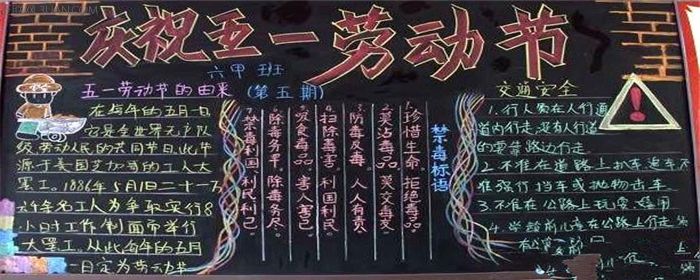 庆祝五一劳动节
六甲班
五一劳动节的由来
(第五期)
在每年的五月一日
它是全世界无产阶
级、劳动人民的共同节日,此节
源于美国芝加哥的工人大
罢工。1886年5月1日二十一万
六千余名工人为争取实行8
小时工作制而举行
大罢工。从此每年的五月
一日定为劳动节
禁毒标语
1.珍惜生命 拒绝毒品
2.莫沾毒品 莫交毒友
3.防毒反毒 人人有责
4.扫除毒害 利国利民
5.吸食毒品 害人害己
6.除毒务早 除毒务尽
7.禁毒利国、利民、利己。
交通安全
1.行人须在人行道
道内行走,没有人行道
的要靠路边行走
2.不准在道路上扒车、追车,不
准强行拦车或抛物击车
3.不准在公路上玩耍、嬉闹
4.学龄前儿童在公路上行走